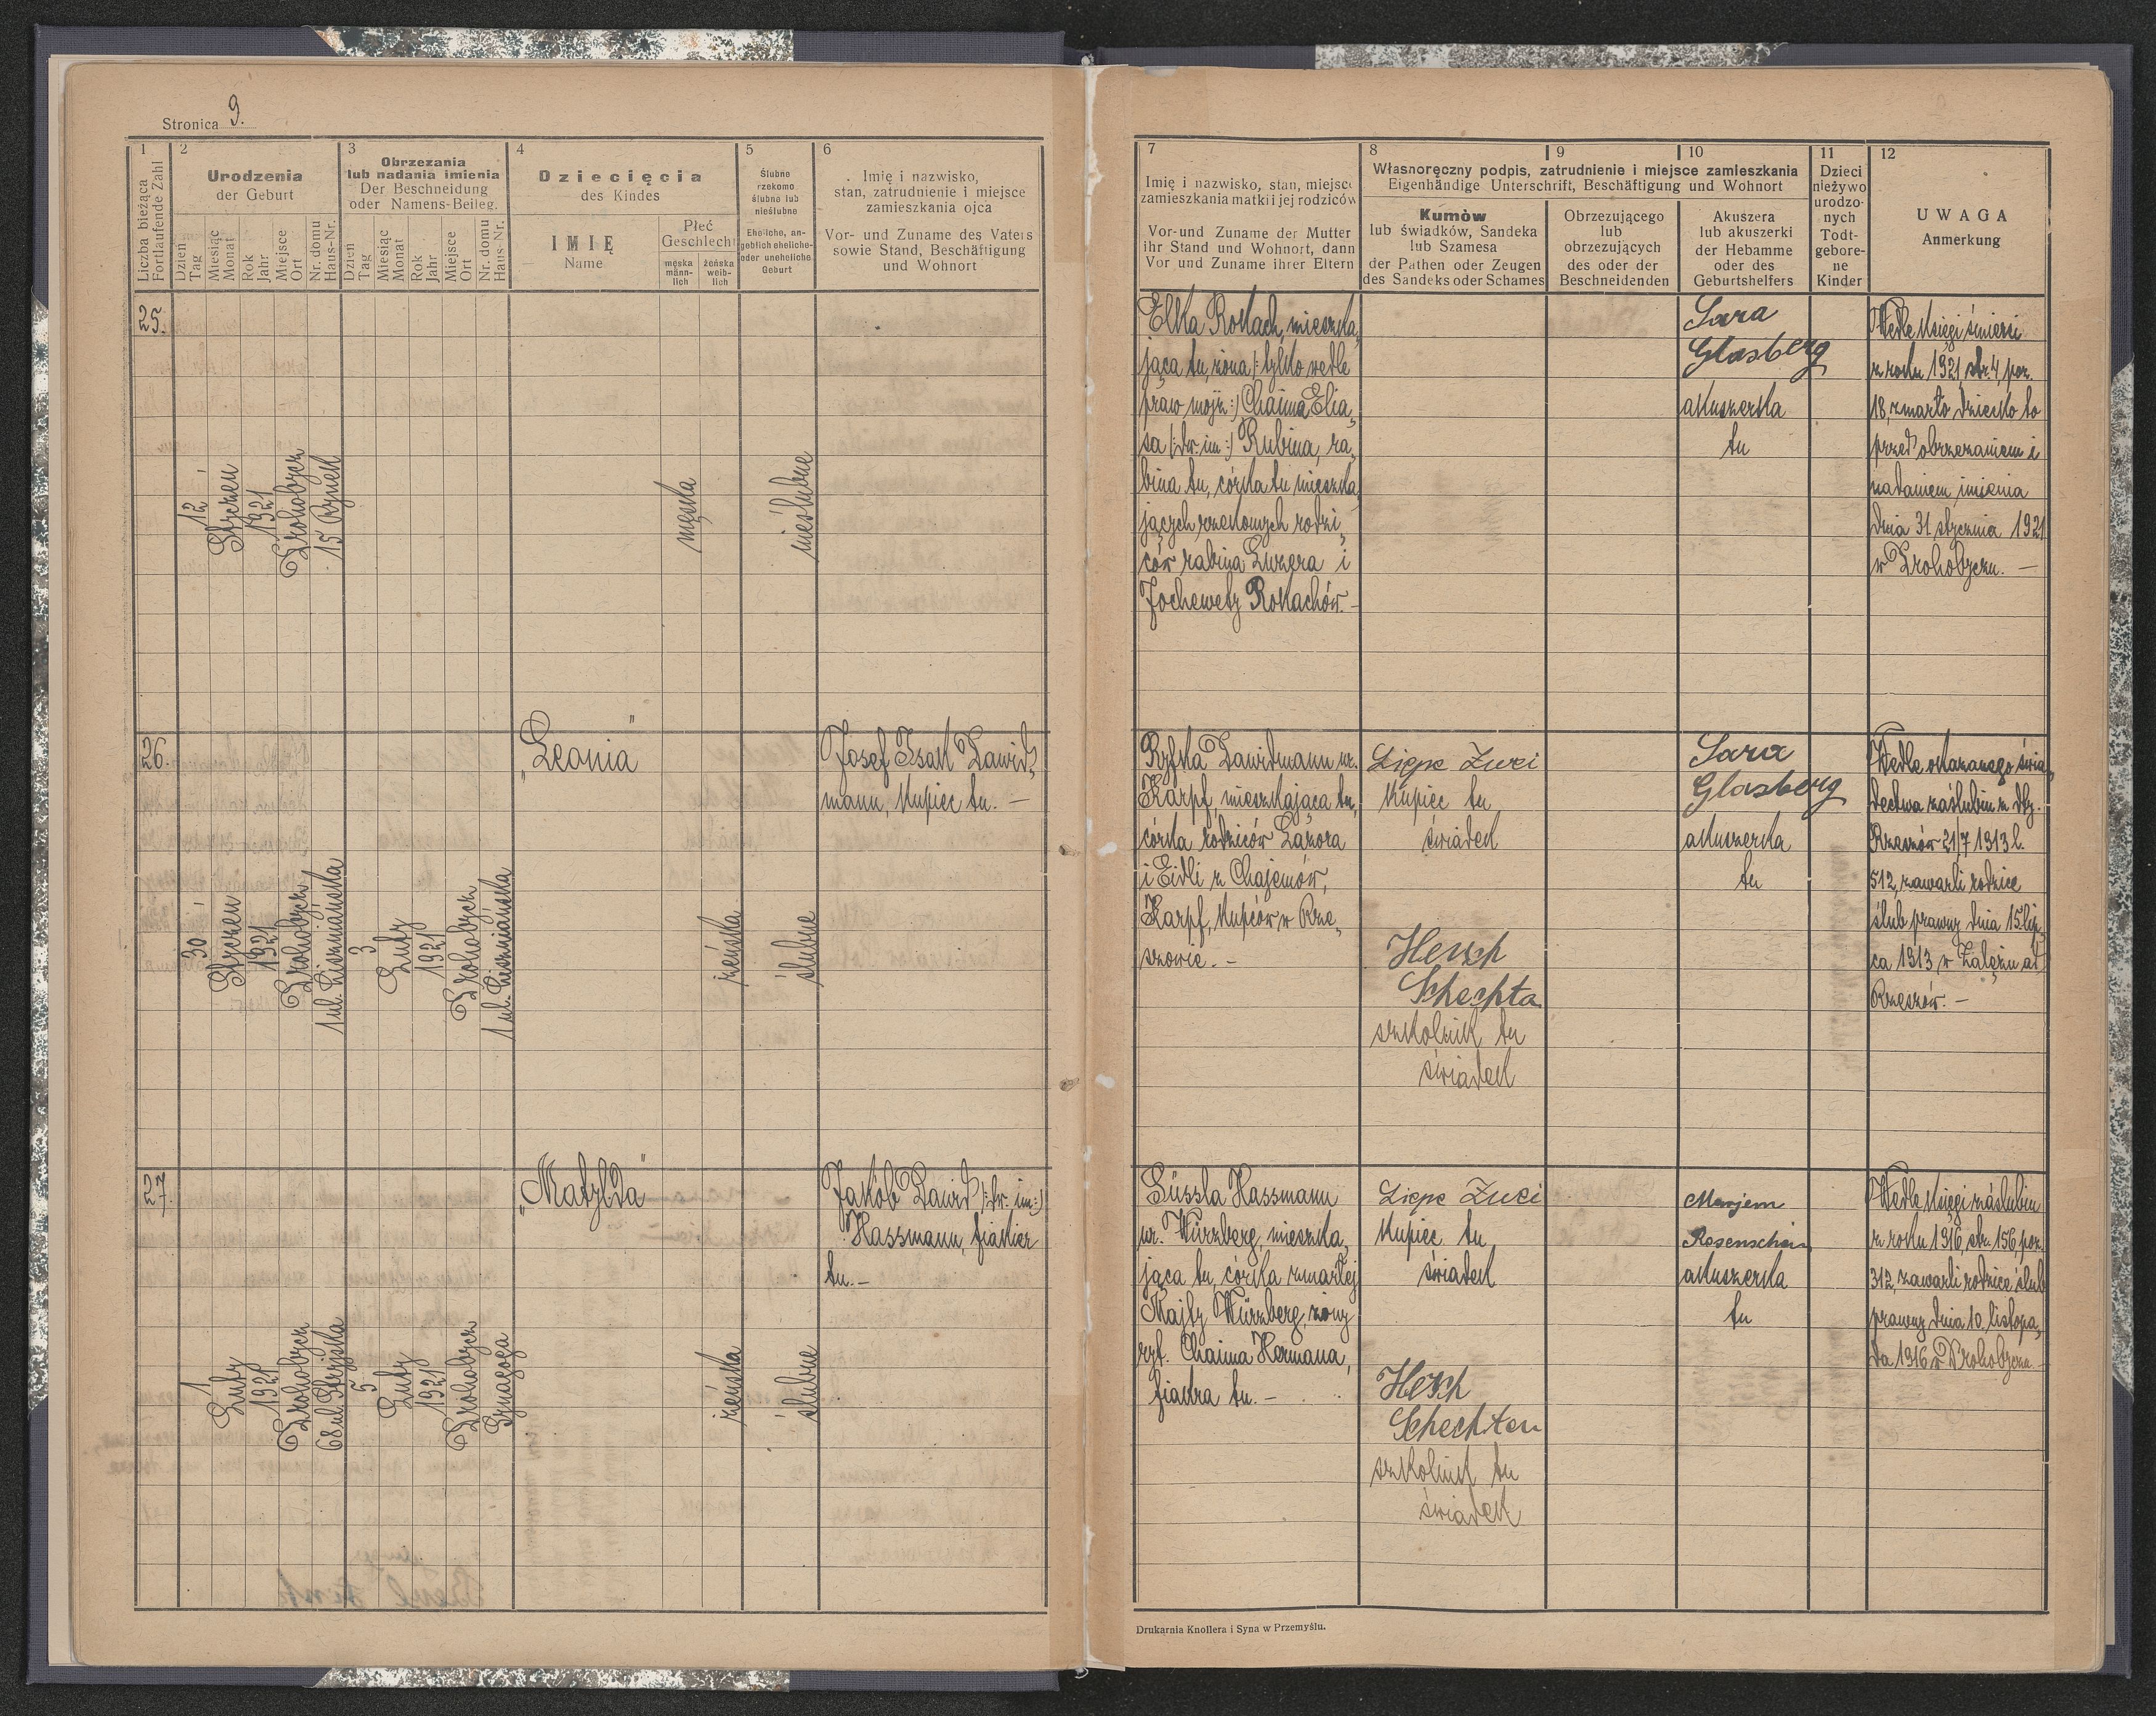 Stronica 9.
1
Liczba bieżąca
Fortlaufende Zahl
2
Urodzenia
der Geburt
Dzień
Tag
Miesiąc
Monat
Rok
Jahr
Miejsce
Ort
Nr. domu
Haus-Nr.
3
Obrzezania
lub nadania imienia
Der Beschneidung
oder Namens-Beileg.
Dzień
Tag
Miesiąc
Monat
Rok
Jahr
Miejsce
Ort
Nr. domu
Haus-Nr.
4
Dziecięcia
des Kindes
IMIĘ
Name
Płeć
Geschlecht
męska
männ-
lich
żeńska
weib-
lich
5
Ślubne
rzekomo
ślubne lub
nieślubne
Eheliche, an-
geblich eheliche
oder uneheliche
Geburt
6
Imię i nazwisko,
stan, zatrudnienie i miejsce
zamieszkania ojca
Vor- und Zuname des Vaters
sowie Stand, Beschäftigung
und Wohnort
7
Imię i nazwisko, stan, miejsce
zamieszkania matki i jej rodziców
Vor-und Zuname der Mutter
ihr Stand und Wohnort, dann
Vor und Zuname ihrer Eltern
8
9
10
Własnoręczny podpis, zatrudnienie i miejsce zamieszkania
Eigenhändige Unterschrift, Beschäftigung und Wohnort
Kumów
lub świadków, Sandeka
lub Szamesa
der Pathen oder Zeugen
des Sandeks oder Schames
Obrzezującego
lub
obrzezujących
des oder der
Beschneidenden
Akuszera
lub akuszerki
der Hebamme
oder des
Geburtshelfers
11
Dzieci
nieżywo
urodzo-
nych
Todt-
gebore-
ne
Kinder
12
UWAGA
Anmerkung
25.
12
Styczeń
1921
Drohobycz
15 Rynek
męska
nieślubne
Elka Rokach, mieszka,
jąca tu, żona /: tylko wedle
praw mojż :/ Chaima Elia,
sa /: dw. im :/ Rubina, ra,
bina tu, córka tu mieszka,
jących rzekomych rodzi,
ców rabina Luzera i
Jochewety Rokachów. -
Sara
Glasberg
akuszerka
tu
Wedle księgi śmierci
z roku 1921, str. 4, poz.
18, zmarło dziecko to
przed obrzezaniem i
nadaniem imienia
dnia 31 stycznia 1921
w Drohobyczu. -
26.
30
Styczeń
1921
Drohobycz
1 ul. Liszniańska
3
Luty
1921
Drohobycz
1 ul. Liszniańska
„Leonia"
żeńska
ślubne
Josef Isak Dawid,
mann, kupiec tu. -
Ryfka Dawidmann ur.
Karpf, mieszkająca tu,
córka rodziców Lazora
i Eidli z Chajemów,
Karpf, kupców w Rze,
szowie. -
Liepe Zwei
kupiec tu
świadek
Hersch
Schechta
szkolnik tu
świadek
Sara
Glasberg
akuszerka
tu
Wedle okazanego świa,
dectwa zaślubin z dtg.
Rzeszów 21/7 1913 l.
512, zawarli rodzice
ślub prawny dnia 15 lip,
ca 1913 w Załężu ad
Rzeszów. -
27.
1
Luty
1921
Drohobycz
68 ul. Stryjska
5
Luty
1921
Drohobycz
Synagoga
„Matylda"
żeńska
ślubne
Jakób Dawid /: dw. im :/
Hassmann, fiakier
tu. -
Süssla Hassmann
ur. Würzberg, mieszka,
jąca tu, córka zmarłej
Majty Würzberg, żony
ryt. Chaima Hermana,
fiakra tu. -
Liepe Zwei
kupiec tu
świadek
Hersch
Schechter
szkolnik tu
świadek
Marjem
Rosenschein
akuszerka
tu
Wedle księgi zaślubin
z roku 1916, str. 156, poz.
312, zawarli rodzice ślub
prawny dnia 10. listopa,
da 1916 w Drohobyczu. -
Drukarnia Knollera i Syna w Przemyślu.